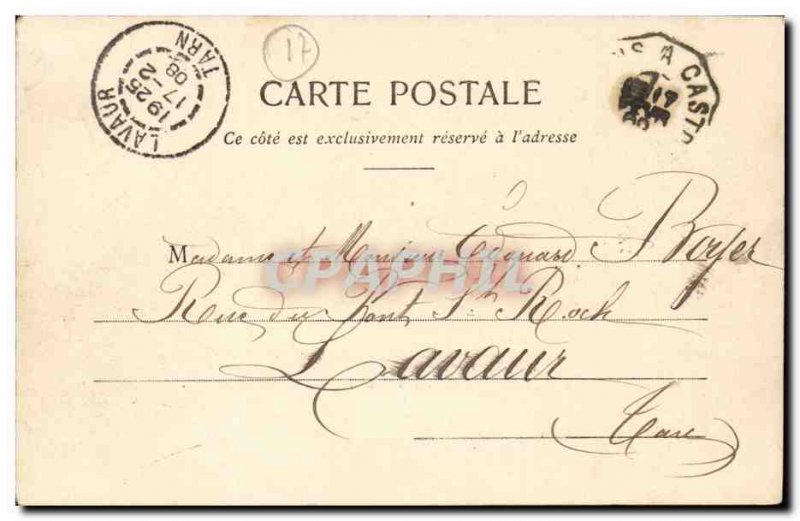 17
LAVAUR
1925
17-2
08
TARN
A CASTR
17
CARTE POSTALE
Ce côté est exclusivement réservé à l'adresse
Madame et Monsieur Edouard Boyer
CPAPHIL
Rue du Pont St Roch
Lavaur
Tarn